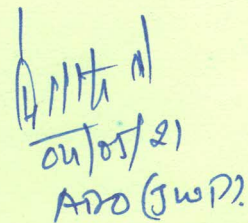 04/05/21
ADO (JWP).